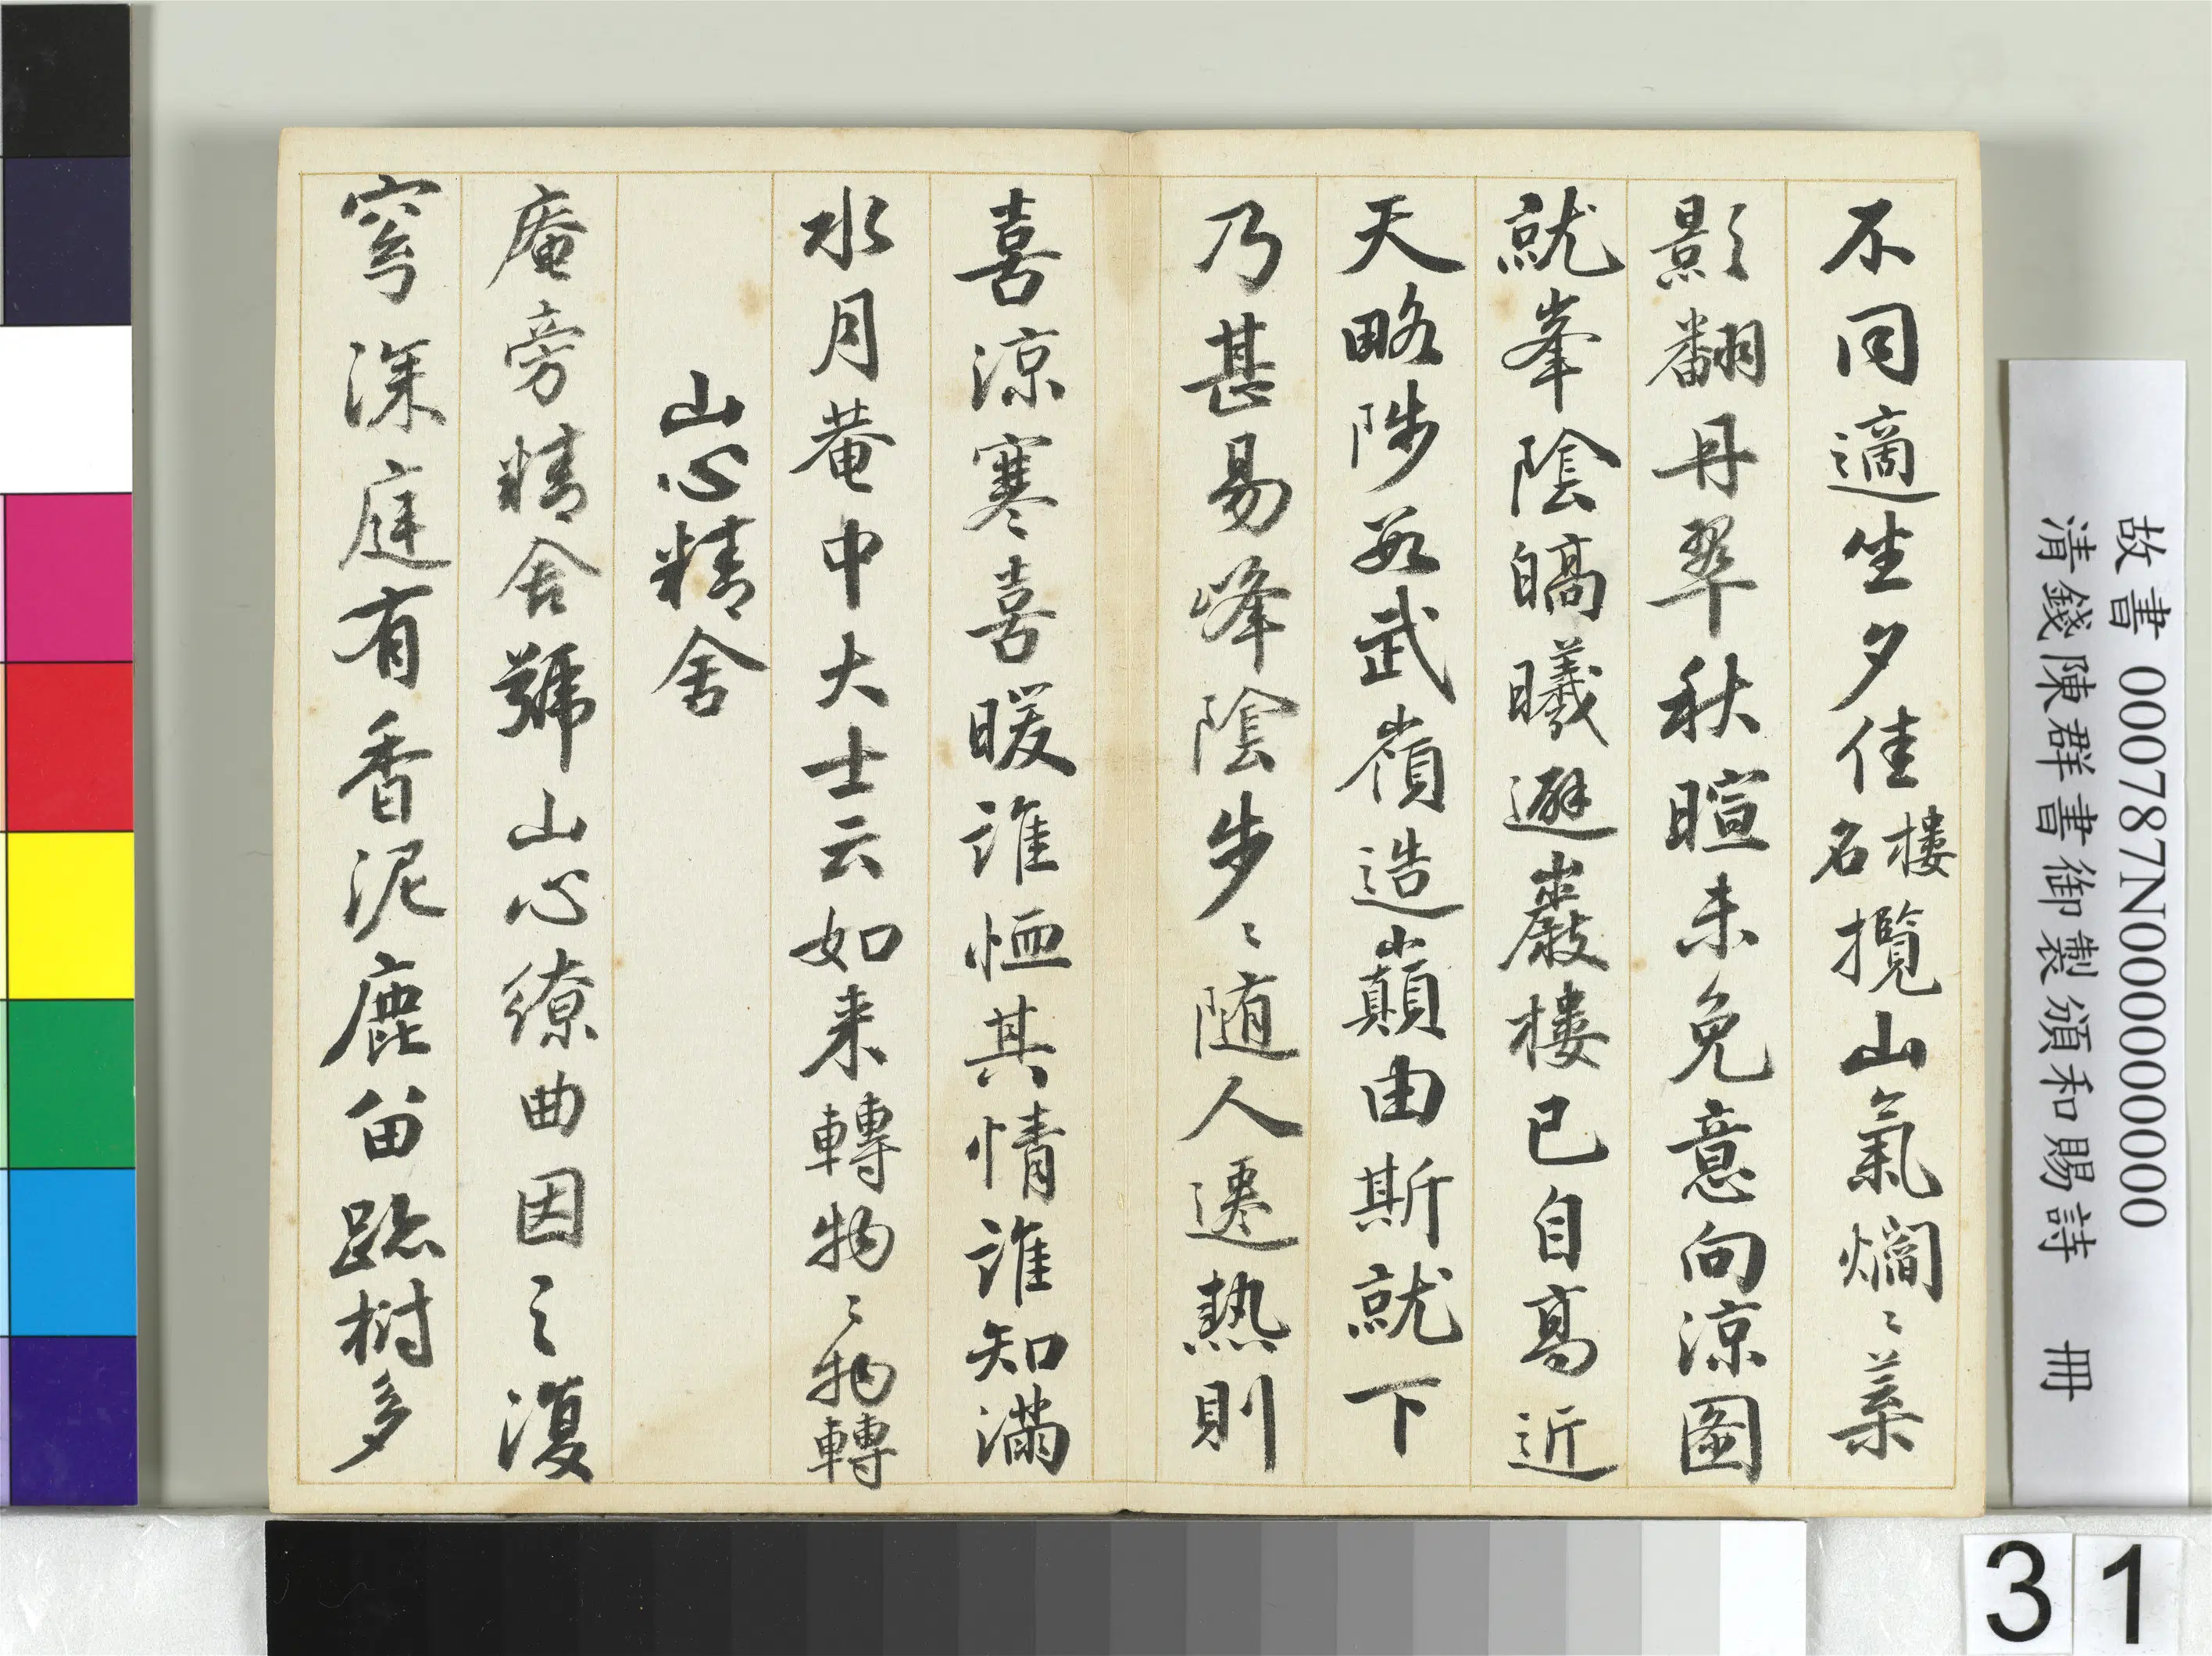 不同適坐夕佳樓名攬山氣爛〻葉
影翻丹翠秋暄未免意向涼圖
就峯陰皜曦避巖樓已自高近
天略陟數武嶺造巔由斯就下
乃甚易峰陰步〻随人遷熱則
喜涼寒喜暖誰恤其情誰知滿
水月菴中大士云如来轉物〻物轉
山心精舍
庵旁精舍號山心繚曲因之復
窅深庭有香泥鹿留跡樹多
故書 000787N000000000
清錢陳群書御製頒和賜詩 冊
31